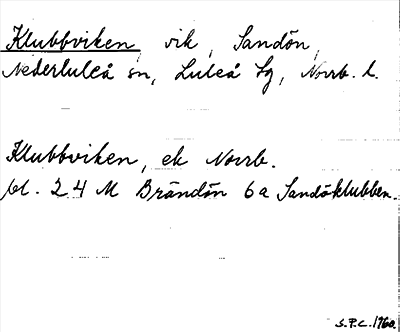 Klubbviken, vik, Sandön,
Nederluleå sn, Luleå tg, Norrb. l.
Klubbviken, ek Norrb.
bl. 24 M Brändön 6a Sandöklubben.
S.P.C. 1960.